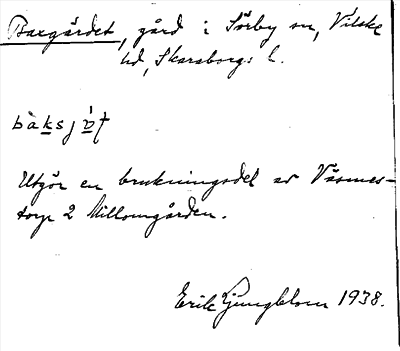 Baxgärdet, gård i Sörby sn, Vilske
hd, Skaraborgs l.
Utgör en brukningsdel av Väsmes-
torp 2 Millomgården.
Erik Ljungblom 1938.